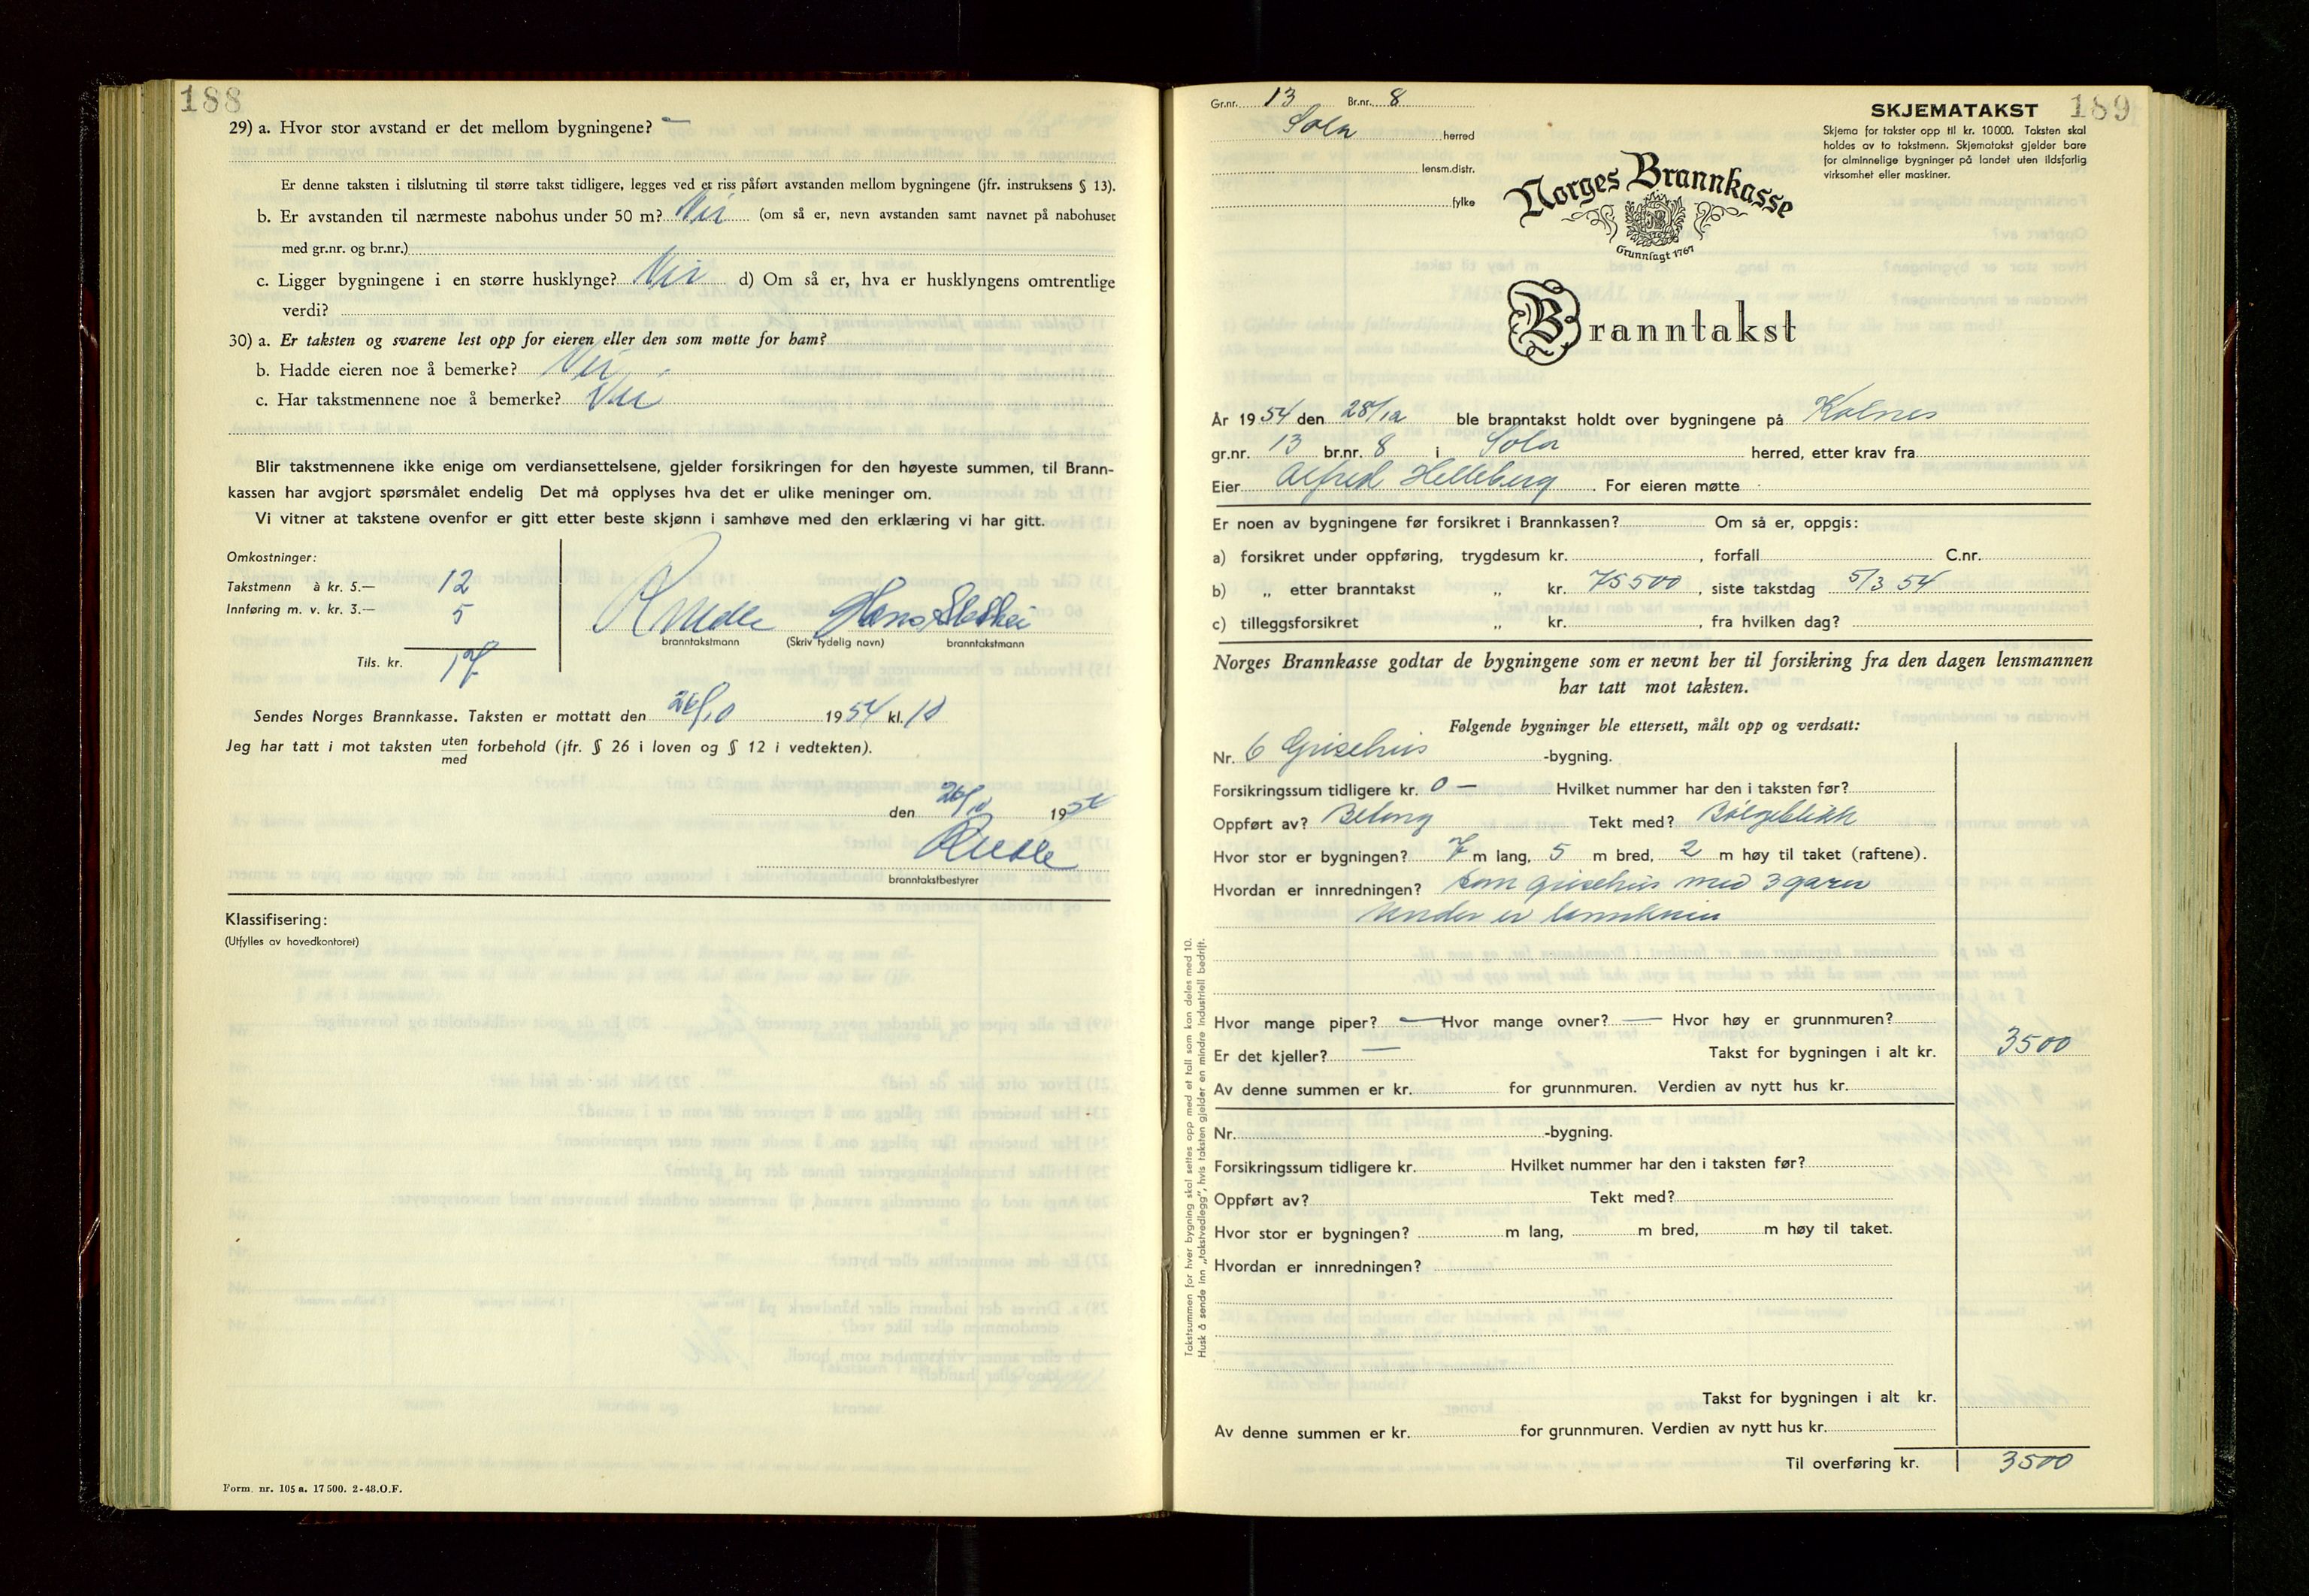 188
29) a. Hvor stor avstand er det mellom bygningene? —
Er denne taksten i tilslutning til større takst tidligere, legges ved et riss påført avstanden mellom bygningene (jfr. instruksens § 13).
b. Er avstanden til nærmeste nabohus under 50 m? Nei (om så er, nevn avstanden samt navnet på nabohuset
med gr.nr. og br.nr.)
c. Ligger bygningene i en større husklynge? Nei d) Om så er, hva er husklyngens omtrentlige
verdi?
30) a. Er taksten og svarene lest opp for eieren eller den som møtte for ham?
b. Hadde eieren noe å bemerke? Nei
c. Har takstmennene noe å bemerke? Nei
Blir takstmennene ikke enige om verdiansettelsene, gjelder forsikringen for den høyeste summen, til Brann-
kassen har avgjort spørsmålet endelig Det må opplyses hva det er ulike meninger om.
Vi vitner at takstene ovenfor er gitt etter beste skjønn i samhøve med den erklæring vi har gitt.
Omkostninger:
Takstmenn à kr. 5.— 12
Innføring m. v. kr. 3.— 5
branntakstmann (Skriv tydelig navn) branntakstmann
Tils. kr. 17
Sendes Norges Brannkasse. Taksten er mottatt den 26/10 1954 kl. 10
Jeg har tatt i mot taksten uten/med forbehold (jfr. § 26 i loven og § 12 i vedtekten).
den 26/10 1954
branntakstbestyrer
Klassifisering:
(Utfylles av hovedkontoret)
Form. nr. 105 a. 17 500. 2-48. O.F.
Gr.nr. 13 Br.nr. 8
Sola herred
lensm.distr.
fylke
SKJEMATAKST 189
Skjema for takster opp til kr. 10000. Taksten skal
holdes av to takstmenn. Skjematakst gjelder bare
for alminnelige bygninger på landet uten ildsfarlig
virksomhet eller maskiner.
Norges Brannkasse
Grunnlagt 1767
Branntakst
År 1954 den 28/12 ble branntakst holdt over bygningene på Kolnes
gr.nr. 13 br.nr. 8 i Sola herred, etter krav fra
Eier Alfred Helleberg. For eieren møtte
Er noen av bygningene før forsikret i Brannkassen? Om så er, oppgis:
a) forsikret under oppføring, trygdesum kr. , forfall C.nr.
b) „ etter branntakst „ kr. 75500, siste takstdag 5/3 54
c) tilleggsforsikret „ kr. , fra hvilken dag?
Norges Brannkasse godtar de bygningene som er nevnt her til forsikring fra den dagen lensmannen
har tatt mot taksten.
Følgende bygninger ble ettersett, målt opp og verdsatt:
Nr. 6 Grisehus -bygning.
Forsikringssum tidligere kr. 0 — Hvilket nummer har den i taksten før?
Oppført av? Betong Tekt med? Bølgeblikk
Hvor stor er bygningen? 7 m lang, 5 m bred, 2 m høy til taket (raftene).
Hvordan er innredningen? Som grisehus med 3 garer
Under er
Hvor mange piper? — Hvor mange ovner? — Hvor høy er grunnmuren?
Er det kjeller? — Takst for bygningen i alt kr. 3500
Av denne summen er kr. for grunnmuren. Verdien av nytt hus kr.
Nr. -bygning.
Forsikringssum tidligere kr. Hvilket nummer har den i taksten før?
Oppført av? Tekt med?
Hvor stor er bygningen? m lang, m bred, m høy til taket.
Hvordan er innredningen?
Takst for bygningen i alt kr.
Av denne summen er kr. for grunnmuren. Verdien av nytt hus kr.
Til overføring kr. 3500
Takstsummen for hver bygning skal settes opp med et tall som kan deles med 10.
Husk å sende inn „takstvedlegg", hvis taksten gjelder en mindre industriell bedrift.